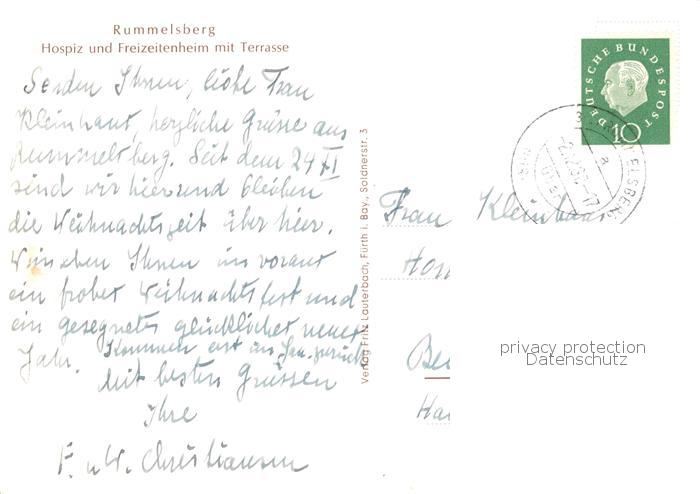 Rummelsberg
Hospiz und Freizeitenheim mit Terrasse
Senden Ihnen, liebe Frau
Kleinhans, herzliche Grüsse aus
Rummelsberg. Seit dem 24 XI
sind wir hier und bleiben
die Weihnachtszeit über hier.
Wünschen Ihnen im voraus
ein frohes Weihnachtsfest und
ein gesegnetes glückliches neues
Jahr. Kommen erst im Jan. zurück
Mit besten Grüssen
Ihre
F. u. W. Christiansen
Verlag Fritz Lauterbach, Fürth i. Bay., Soldnerstr. 3
DEUTSCHE BUNDESPOST
10
Frau Kleinhans
privacy protection
Datenschutz